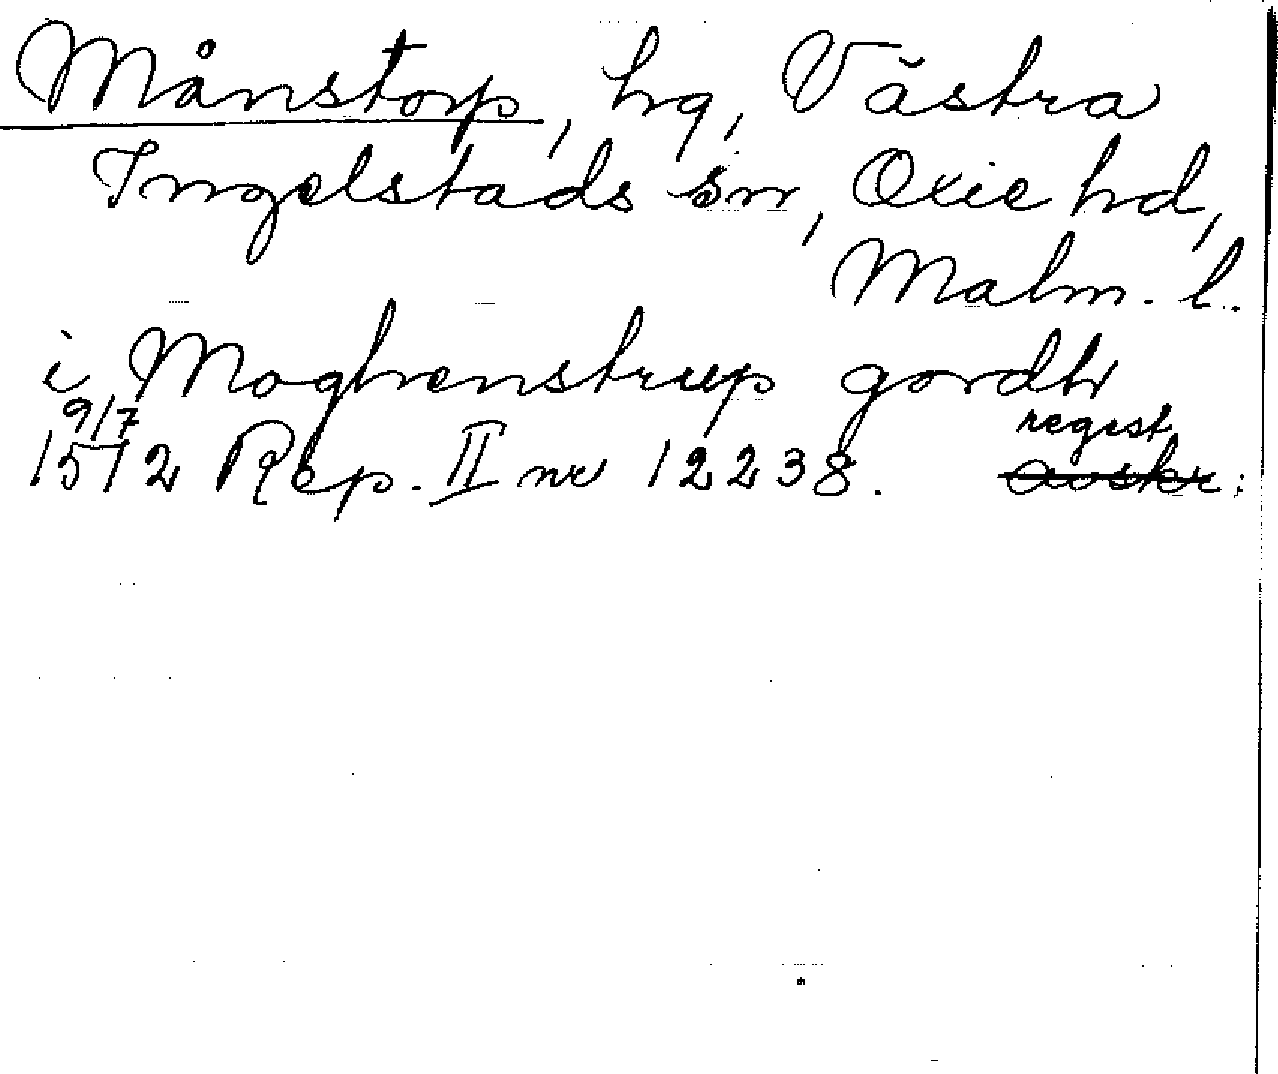 Månstorp, hg, Västra
Ingelstads sn, Oxie hd,
Malm. l.
i Moghenstrup gordh
9/7
1512 Rep. II nr 12238. regest
avskr.